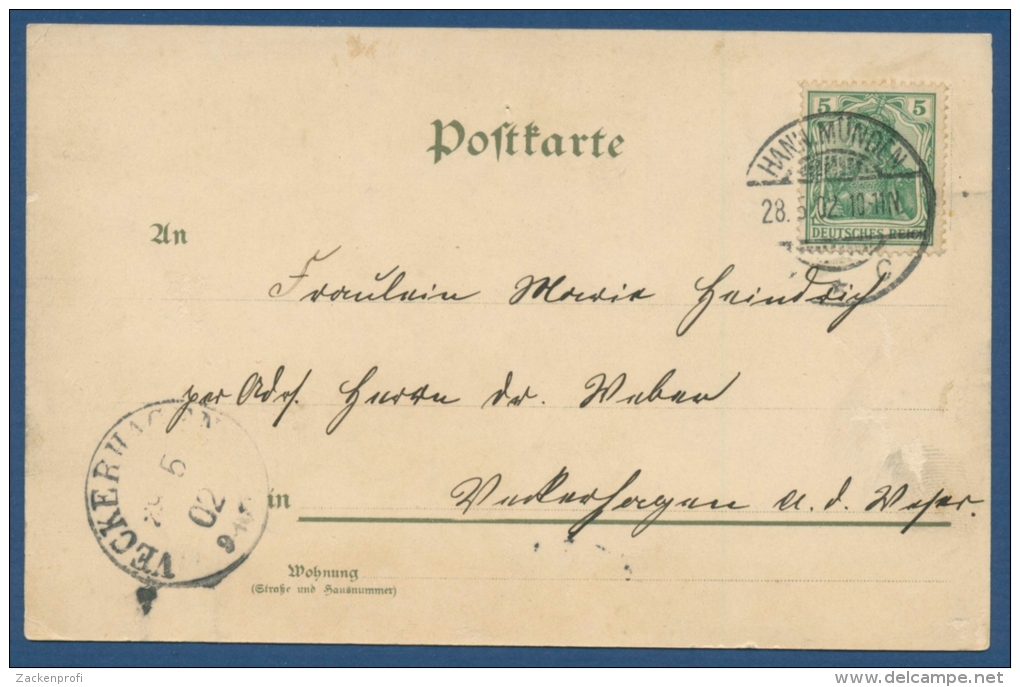 Postkarte
5 5
HANN. MÜNDEN
28. 5. 02. 10-11 N.
DEUTSCHES REICH
c
An
Fräulein Marie Heindrich
per Adr. Herrn Dr. Weber
VECKERHAGEN
5
02
9-10
in
Veckerhagen a. d. Weser.
Wohnung
(Straße und Hausnummer)
Zackenprofi
www.delcampe.net